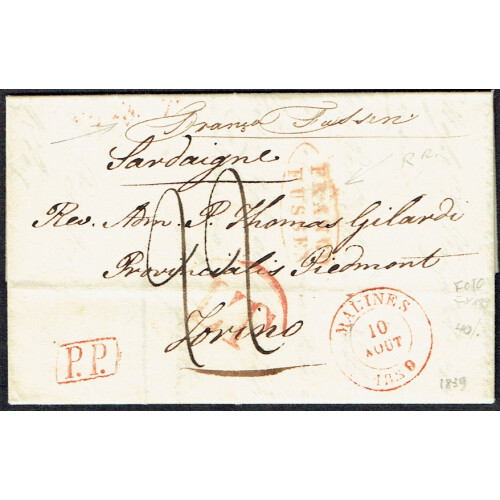 Franco Fussen
Sardaigne
FRANCO
R R.
Rev. Adm. P. Thomas Gilardi
Provincialis Piedmont
Torino
22
P.P.
MALINES
10
AOUT
1839
FOTO
40/.
1839